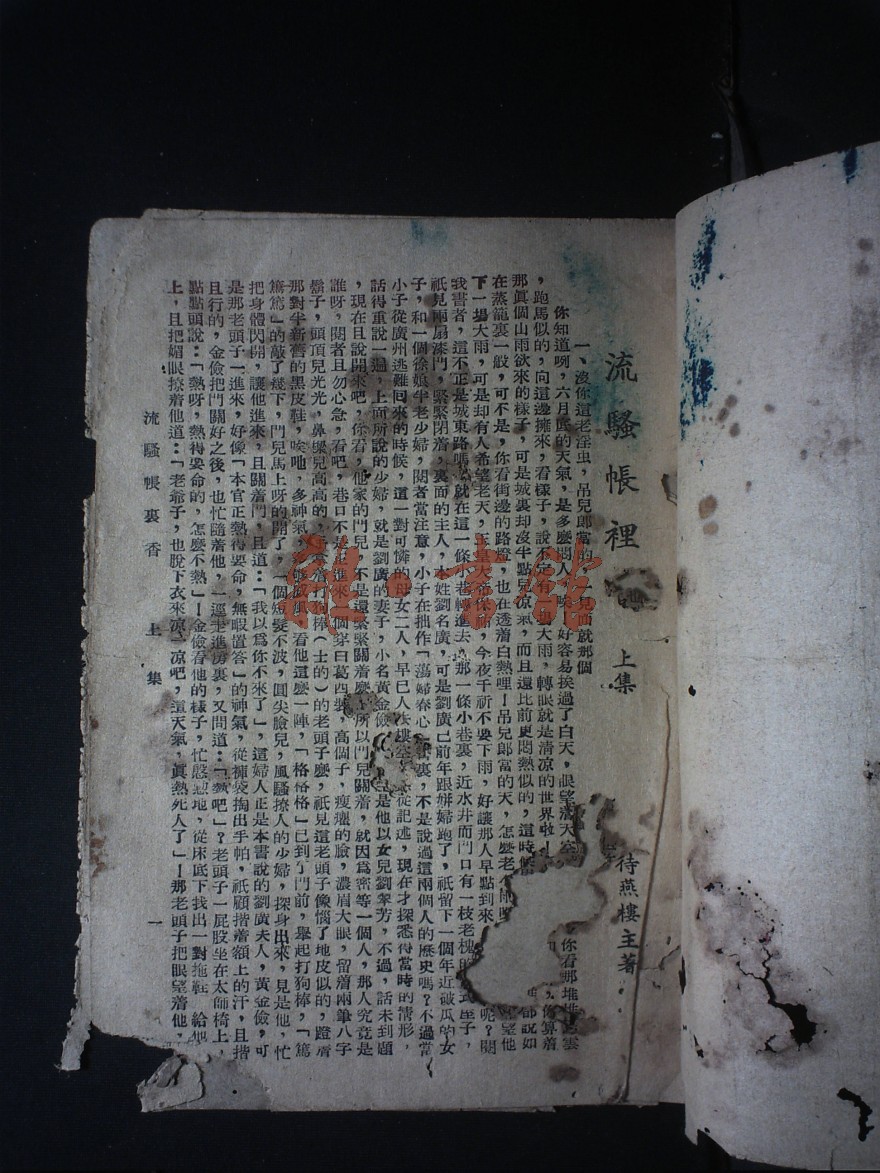 流騷帳裡 上集
待燕樓主著
一、沒你這老淫虫，吊兒郎當的 一見而就那個
你知道咧，六月底的天氣，是多麼悶人，唉 好容易挨過了白天，眼望滿天空 你看那堆堆 雲
，跑馬似的，向這邊擁來，看樣子，說不定有 大雨，轉眼就是清凉的世界啦！ 你算着
那眞個山雨欲來的樣子，可是城裏却沒半點兒凉氣，而且還比前更悶熱似的，這時 都說如
在蒸籠裏一般，可不是，你看街邊的路燈，也在透着白熱哩！吊兒郎當的天，怎麼老 望他
下一場大雨，可是却有人希望老天，玉皇大帝保祐，今夜千祈不要下雨，好讓那人早點到來 呢？閱
我書者，這不正是城東路嗎，就在這一條小巷轉進去，那一條小巷裏，近水井而門口有一枝老槐的 式座子，
祇見兩扇漆門，緊緊閉着，裏面的主人，本姓劉名廣，可是劉廣已前年跟姘婦跑了，祇留下一個年近破瓜的女
子，和一個徐娘半老少婦，閱者當注意，小子在拙作「蕩婦春心」 裏，不是說過這兩個人的歷史嗎？不過當
小子從廣州逃難囘來的時候，這一對可憐的母女二人，早已人去樓空， 從記述，現在才探悉得當時的情形，
話得重說一過，上面所說的少婦，就是劉廣的妻子，小名黃金儉， 是他以女兒劉翠芳，不過，話未到題
，現在且說開來吧，你看，他家的門兒，不是還緊緊關着麼，所以門兒關着，就因爲密等一個人，那人究竟是
誰呀，閱者且勿心急，看吧，巷口不是走進來一個穿曰葛西裝，高個子，瘦癯的臉，濃眉大眼，留着兩筆八字
鬍子，頭頂兒光光，鼻樑兒高高的，手拿着打狗棒（士的）的老頭子麼，祇見這老頭子像惱了地皮似的，蹬着
那對半新舊的黑皮鞋，唉吔，多神氣，多够威風，看他這麼一陣，「格格格」已到了門前，舉起打狗棒，「篤
篤篤」的敲了幾下，門兒馬上呀的開了，一個短髮不波，圓尖臉兒，風騷撩人的少婦，探身出來，見是他，忙
把身體閃開，讓他進來，且關着門，且道：「我以爲你不來了」，這婦人正是本書說的劉廣夫人，黃金儉，可
是那老頭子一進來，好像「本官正熱得要命，無暇置答」的神氣，從褲袋掏出手帕，祇顧揩着額上的汗，且揩
且行的，金儉把門關好之後，也忙隨着他，一逕走進房裏，又問道：「熱吧」？老頭子一屁股坐在太師椅上，
點點頭說：「熱呀，熱得要命的，怎麼不熱」！金儉看他的樣子，忙慇懃地，從床底下找出一對拖鞋，給他
上，且把媚眼撩着他道：「老爺子，也脫下衣來凉一凉吧，這天氣，眞熱死人了」！那老頭子把眼望着他，
流騷帳裏香 上集 一